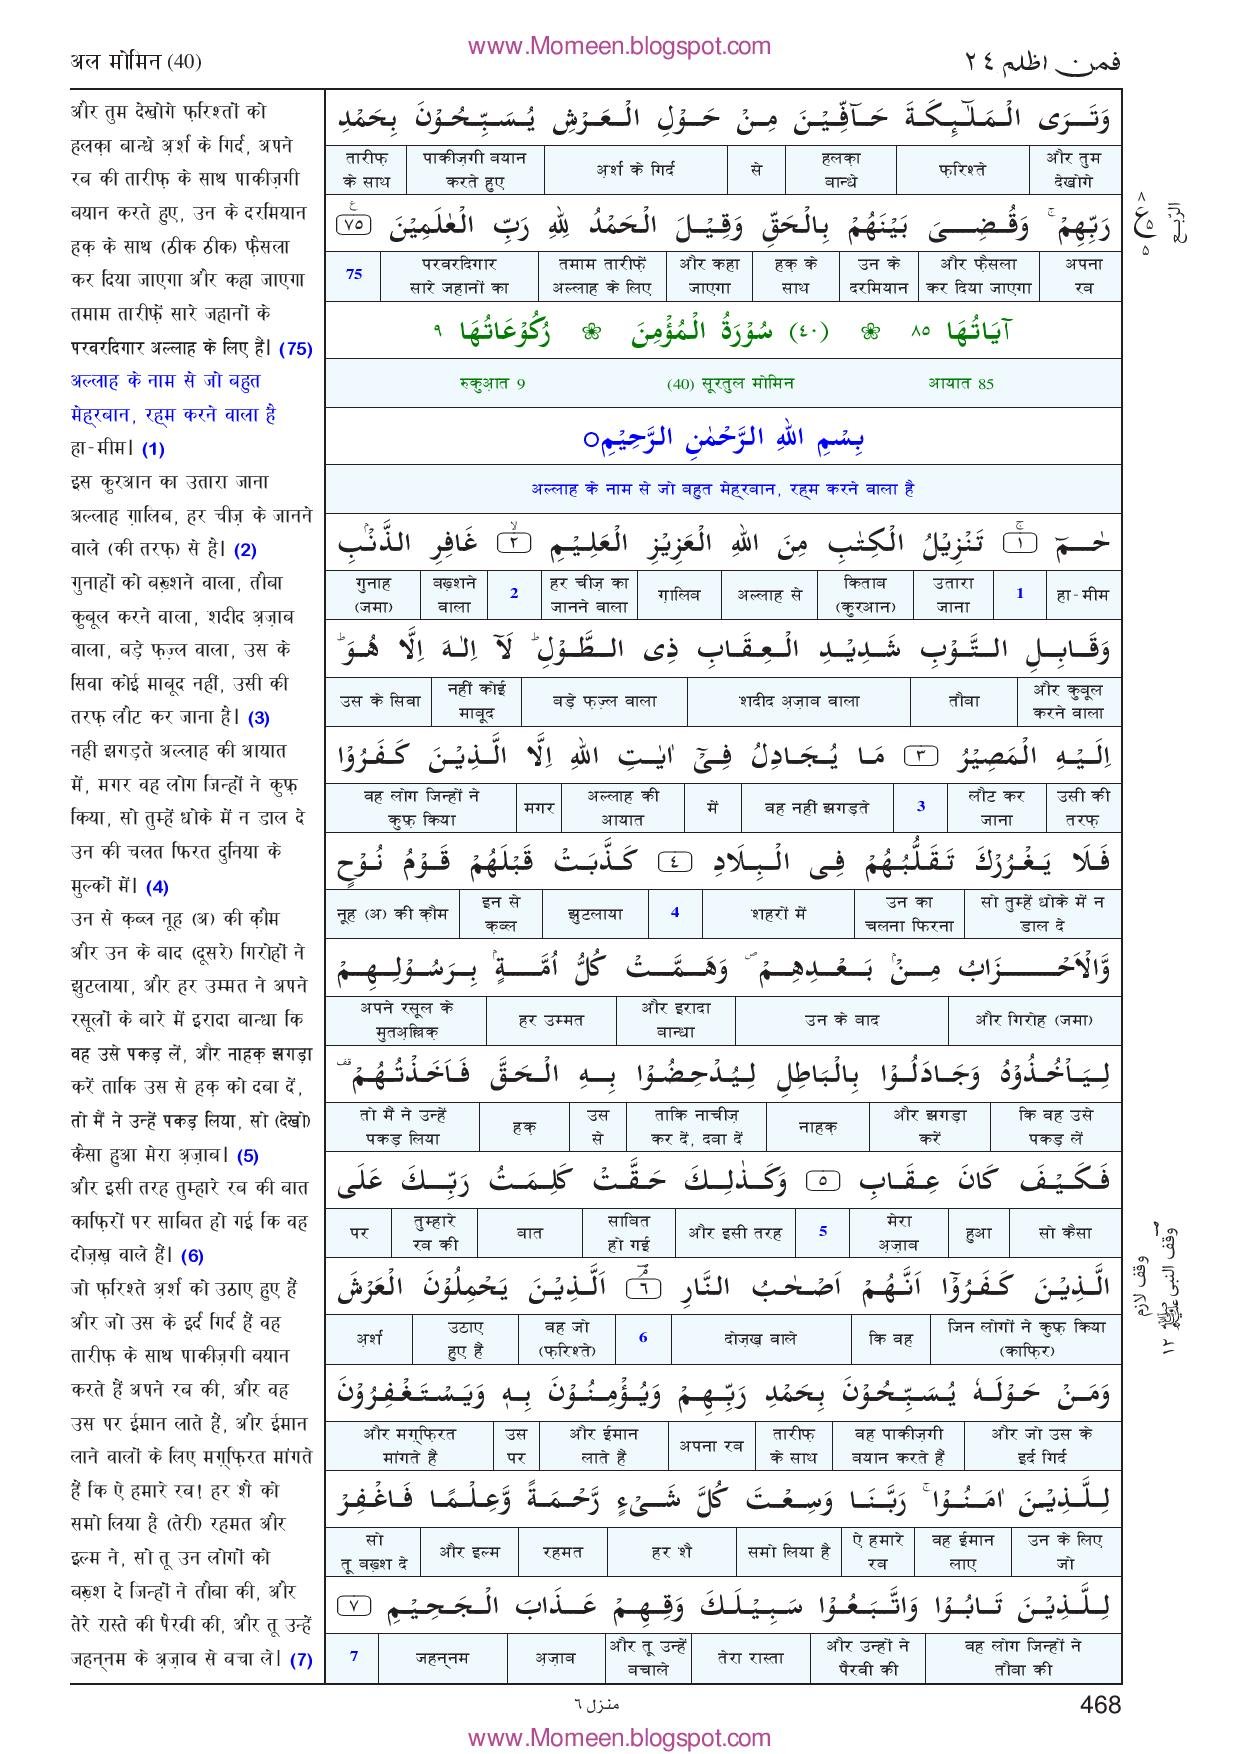 www.Momeen.blogspot.com
अल मोमिन (40)
فمن اظلم ٢٤
और तुम देखोगे फ़रिश्तों को
हलक़ा बान्धे अ़र्श के गिर्द, अपने
रब की तारीफ़ के साथ पाकीज़गी
बयान करते हुए, उन के दरमियान
हक़ के साथ (ठीक ठीक) फ़ैसला
कर दिया जाएगा और कहा जाएगा
तमाम तारीफ़ें सारे जहानों के
परवरदिगार अल्लाह के लिए हैं। (75)
अल्लाह के नाम से जो बहुत
मेह्रबान, रह्म करने वाला है
हा-मीम। (1)
इस कुरआन का उतारा जाना
अल्लाह ग़ालिब, हर चीज़ के जानने
वाले (की तरफ़) से है। (2)
गुनाहों को बख़्शने वाला, तौबा
क़ुबूल करने वाला, शदीद अ़ज़ाब
वाला, बड़े फ़ज़्ल वाला, उस के
सिवा कोई माबूद नहीं, उसी की
तरफ़ लौट कर जाना है। (3)
नहीं झगड़ते अल्लाह की आयात
में, मगर वह लोग जिन्हों ने कुफ़्र
किया, सो तुम्हें धोके में न डाल दे
उन की चलत फिरत दुनिया के
मुल्कों में। (4)
उन से क़ब्ल नूह (अ) की क़ौम
और उन के बाद (दूसरे) गिरोहों ने
झुटलाया, और हर उम्मत ने अपने
रसूलों के बारे में इरादा बान्धा कि
वह उसे पकड़ लें, और नाहक़ झगड़ा
करें ताकि उस से हक़ को दबा दें,
तो मैं ने उन्हें पकड़ लिया, सो (देखो)
कैसा हुआ मेरा अ़ज़ाब। (5)
और इसी तरह तुम्हारे रब की बात
काफ़िरों पर साबित हो गई कि वह
दोज़ख़ वाले हैं। (6)
जो फ़रिश्ते अ़र्श को उठाए हुए हैं
और जो उस के इर्द गिर्द हैं वह
तारीफ़ के साथ पाकीज़गी बयान
करते हैं अपने रब की, और वह
उस पर ईमान लाते हैं, और ईमान
लाने वालों के लिए मग़्फ़िरत मांगते
हैं कि ऐ हमारे रब! हर शै को
समो लिया है (तेरी) रहमत और
इल्म ने, सो तू उन लोगों को
बख़्श दे जिन्हों ने तौबा की, और
तेरे रास्ते की पैरवी की, और तू उन्हें
जहन्नम के अ़ज़ाब से बचा ले। (7)
وَتَرَى الْمَلٰٓئِكَةَ حَآفِّيْنَ مِنْ حَوْلِ الْعَرْشِ يُسَبِّحُوْنَ بِحَمْدِ
तारीफ़ के साथ | पाकीज़गी बयान करते हुए | अ़र्श के गिर्द | से | हलक़ा बान्धे | फ़रिश्ते | और तुम देखोगे
رَبِّهِمْ ۚ وَقُضِىَ بَيْنَهُمْ بِالْحَقِّ وَقِيْلَ الْحَمْدُ لِلّٰهِ رَبِّ الْعٰلَمِيْنَ ٧٥
75 | परवरदिगार सारे जहानों का | तमाम तारीफ़ें अल्लाह के लिए | और कहा जाएगा | हक़ के साथ | उन के दरमियान | और फ़ैसला कर दिया जाएगा | अपना रब
اٰيَاتُهَا ٨٥ ❀ (٤٠) سُوْرَةُ الْمُؤْمِنَ ❀ رُكُوْعَاتُهَا ٩
रुकुआ़त 9 (40) सूरतुल मोमिन आयात 85
بِسْمِ اللّٰهِ الرَّحْمٰنِ الرَّحِيْمِ ○
अल्लाह के नाम से जो बहुत मेह्रबान, रह्म करने वाला है
حٰمٓ ١ۚ تَنْزِيْلُ الْكِتٰبِ مِنَ اللّٰهِ الْعَزِيْزِ الْعَلِيْمِ ٢ۙ غَافِرِ الذَّنْۢبِ
गुनाह (जमा) | बख़्शने वाला | 2 | हर चीज़ का जानने वाला | ग़ालिब | अल्लाह से | किताब (कुरआन) | उतारा जाना | 1 | हा-मीम
وَقَابِلِ التَّوْبِ شَدِيْدِ الْعِقَابِ ذِى الطَّوْلِ ؕ لَآ اِلٰهَ اِلَّا هُوَ ؕ
उस के सिवा | नहीं कोई माबूद | बड़े फ़ज़्ल वाला | शदीद अ़ज़ाब वाला | तौबा | और क़ुबूल करने वाला
اِلَيْهِ الْمَصِيْرُ ٣ مَا يُجَادِلُ فِىْٓ اٰيٰتِ اللّٰهِ اِلَّا الَّذِيْنَ كَفَرُوْا
वह लोग जिन्हों ने कुफ़्र किया | मगर | अल्लाह की आयात | में | वह नहीं झगड़ते | 3 | लौट कर जाना | उसी की तरफ़
فَلَا يَغْرُرْكَ تَقَلُّبُهُمْ فِى الْبِلَادِ ٤ كَذَّبَتْ قَبْلَهُمْ قَوْمُ نُوْحٍ
नूह (अ) की क़ौम | इन से क़ब्ल | झुटलाया | 4 | शहरों में | उन का चलना फिरना | सो तुम्हें धोके में न डाल दे
وَّالْاَحْزَابُ مِنْۢ بَعْدِهِمْ ۪ وَهَمَّتْ كُلُّ اُمَّةٍۢ بِرَسُوْلِهِمْ
अपने रसूल के मुतअ़ल्लिक़ | हर उम्मत | और इरादा बान्धा | उन के बाद | और गिरोह (जमा)
لِيَاْخُذُوْهُ وَجَادَلُوْا بِالْبَاطِلِ لِيُدْحِضُوْا بِهِ الْحَقَّ فَاَخَذْتُهُمْ قف
तो मैं ने उन्हें पकड़ लिया | हक़ | उस से | ताकि नाचीज़ कर दें, दबा दें | नाहक़ | और झगड़ा करें | कि वह उसे पकड़ लें
فَكَيْفَ كَانَ عِقَابِ ٥ وَكَذٰلِكَ حَقَّتْ كَلِمَتُ رَبِّكَ عَلَى
पर | तुम्हारे रब की | बात | साबित हो गई | और इसी तरह | 5 | मेरा अ़ज़ाब | हुआ | सो कैसा
الَّذِيْنَ كَفَرُوْٓا اَنَّهُمْ اَصْحٰبُ النَّارِ ٦ۘ اَلَّذِيْنَ يَحْمِلُوْنَ الْعَرْشَ
अ़र्श | उठाए हुए हैं | वह जो (फ़रिश्ते) | 6 | दोज़ख़ वाले | कि वह | जिन लोगों ने कुफ़्र किया (काफ़िर)
وَمَنْ حَوْلَهٗ يُسَبِّحُوْنَ بِحَمْدِ رَبِّهِمْ وَيُؤْمِنُوْنَ بِهٖ وَيَسْتَغْفِرُوْنَ
और मग़्फ़िरत मांगते हैं | उस पर | और ईमान लाते हैं | अपना रब | तारीफ़ के साथ | वह पाकीज़गी बयान करते हैं | और जो उस के इर्द गिर्द
لِلَّذِيْنَ اٰمَنُوْا ۚ رَبَّنَا وَسِعْتَ كُلَّ شَىْءٍ رَّحْمَةً وَّعِلْمًا فَاغْفِرْ
सो तू बख़्श दे | और इल्म | रहमत | हर शै | समो लिया है | ऐ हमारे रब | वह ईमान लाए | उन के लिए जो
لِلَّذِيْنَ تَابُوْا وَاتَّبَعُوْا سَبِيْلَكَ وَقِهِمْ عَذَابَ الْجَحِيْمِ ٧
7 | जहन्नम | अ़ज़ाब | और तू उन्हें बचाले | तेरा रास्ता | और उन्हों ने पैरवी की | वह लोग जिन्हों ने तौबा की
٨
ع
٥
٥
الرّبع
وقف لازم
وقف النبى ﷺ ١٢
منزل ٦
468
www.Momeen.blogspot.com